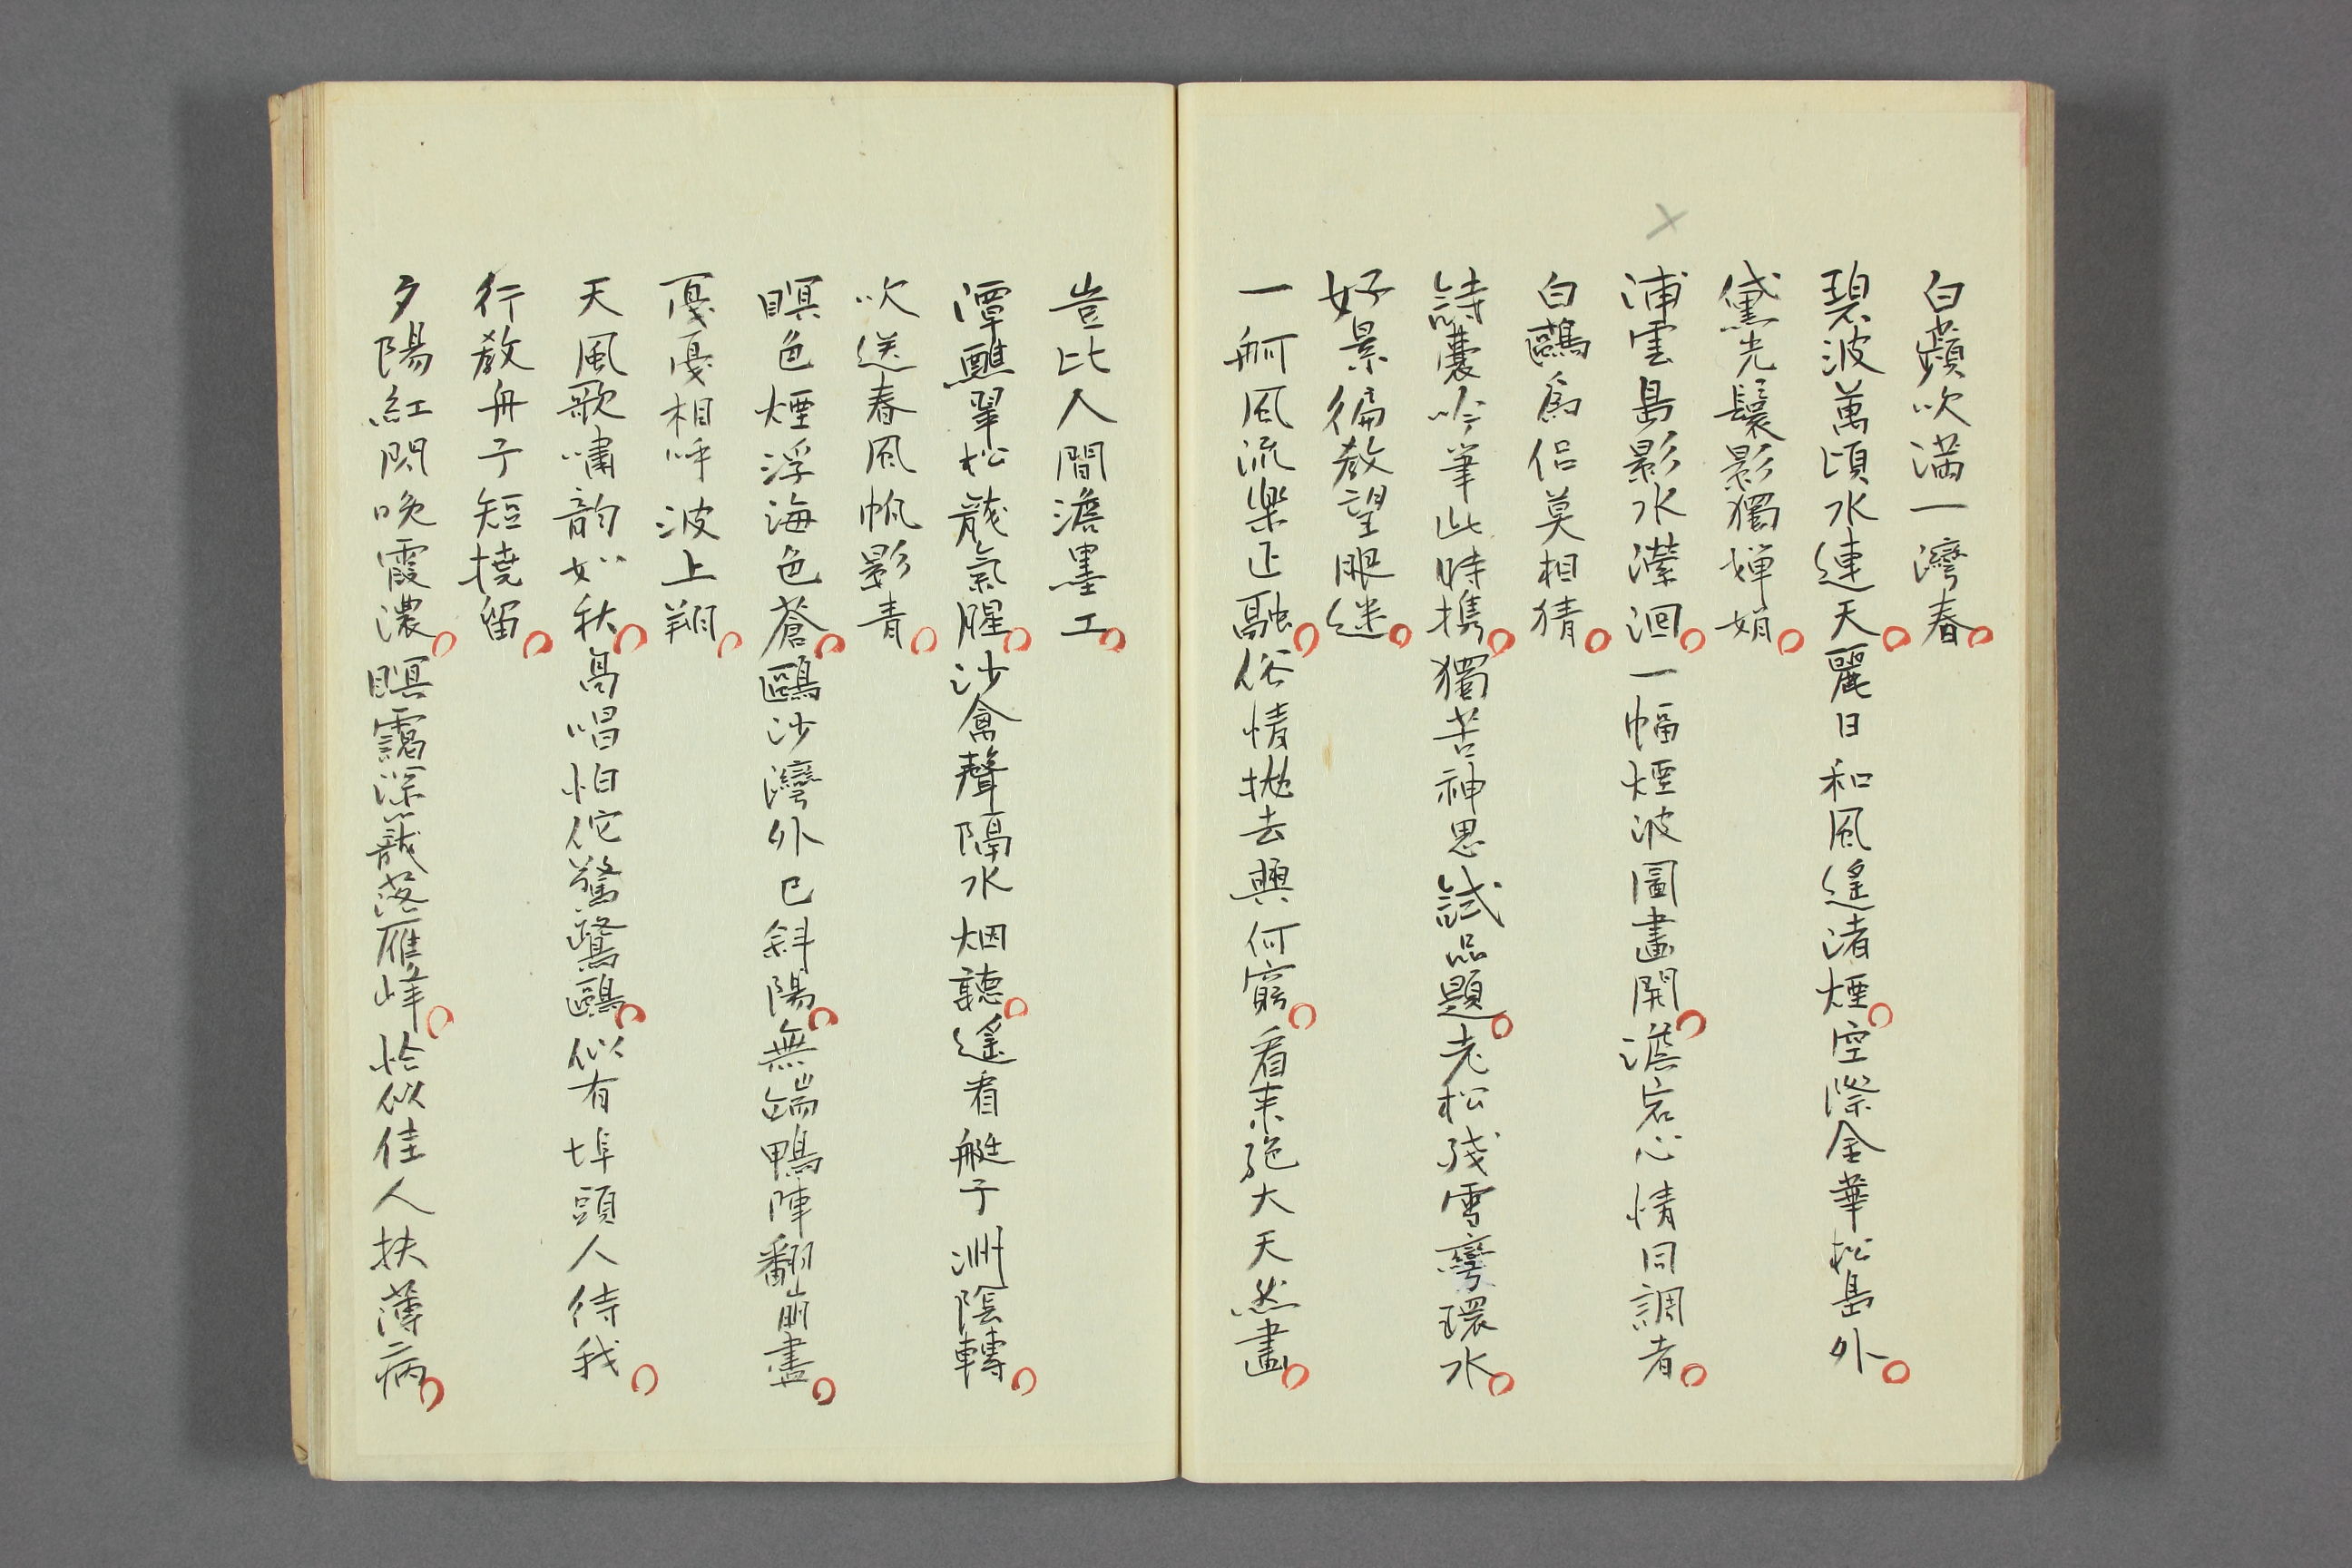 白蘋吹满一灣春
碧波萬頃水連天麗日和風遙渚煙空際金華松島外
黛光鬟影獨嬋娟
浦雲島影水瀠洄一幅煙波圖畫開澹宕心情同調者
白鷗爲侶莫相猜
詩囊吟筆此時携獨苦神思試品題老松殘雪彎環水
好景徧教望眼迷
一舸風流樂正融俗情拋去興何窮看来絕大天然畫
豈比人間澹墨工
潭蘸翠松龍氣腥沙禽聲隔水烟聽遙看艇子洲陰轉
吹送春風帆影青
瞑色煙浮海色蒼鷗沙灣外已斜陽無端鴨陣翻崩盡
戛戛相呼波上翔
天風歌嘯韵如秋高唱怕佗驚鷺鷗似有埠頭人待我
行教舟子短撓留
夕陽紅閃晚霞濃瞑靄深籠落雁峰恰似佳人扶薄病